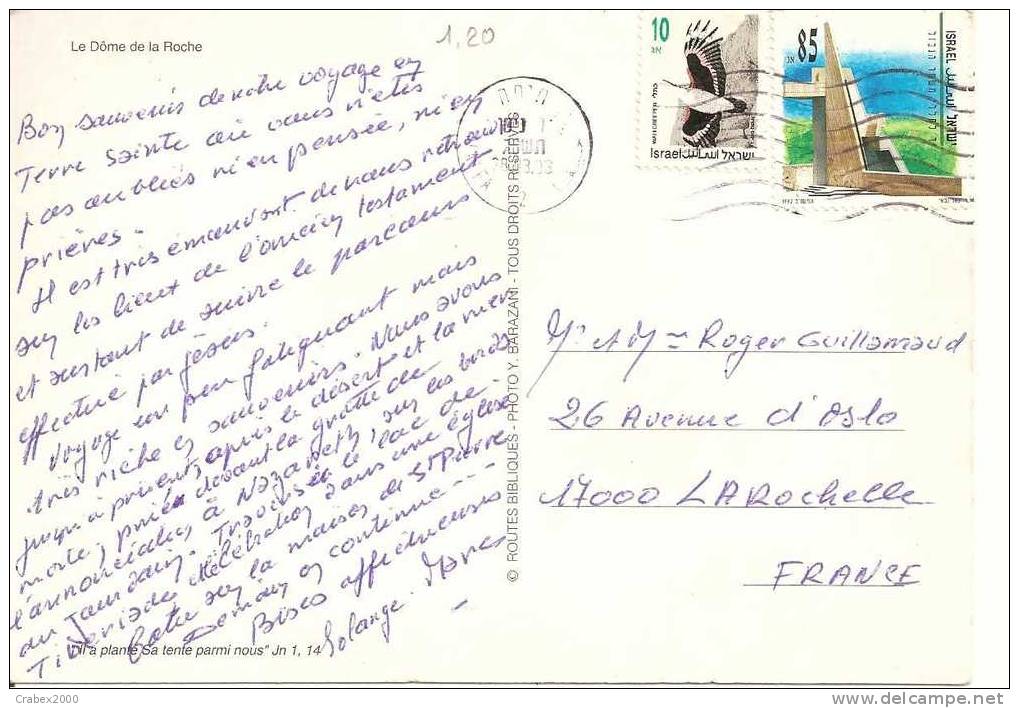 Le Dôme de la Roche
1,20
Bon souvenir de notre voyage en
Terre Sainte où vous n'etes
pas oubliés ni en pensée, ni en
prières.
Il est tres émouvant de nous retrouver
sur les lieux de l'ancien testament
et surtout de suivre le parcours
effectué par Jésus.
Voyage un peu fatiguant mais
très riche en souvenirs. Nous avons
jusqu'à présent, après le désert et la mer
morte, prié devant la grotte de
l'annonciation à Nazareth, sur les bords
du Jourdain. Traversée le lac de
Tiberiade célébration dans une église
batie sur la maison de St Pierre
Demain on continue --
Bises affectueuses
Solange Marc
"Il a planté Sa tente parmi nous" Jn 1, 14
© ROUTES BIBLIQUES - PHOTO Y. BARAZANI - TOUS DROITS RÉSERVÉS
10
Israel اسرائيل ישראל
85
ISRAEL اسرائيل ישראל
Mr et Mme Roger Guillamaud
26 Avenue d'Oslo
17000 LA Rochelle
FRANCE
Crabex2000
www.delcampe.net